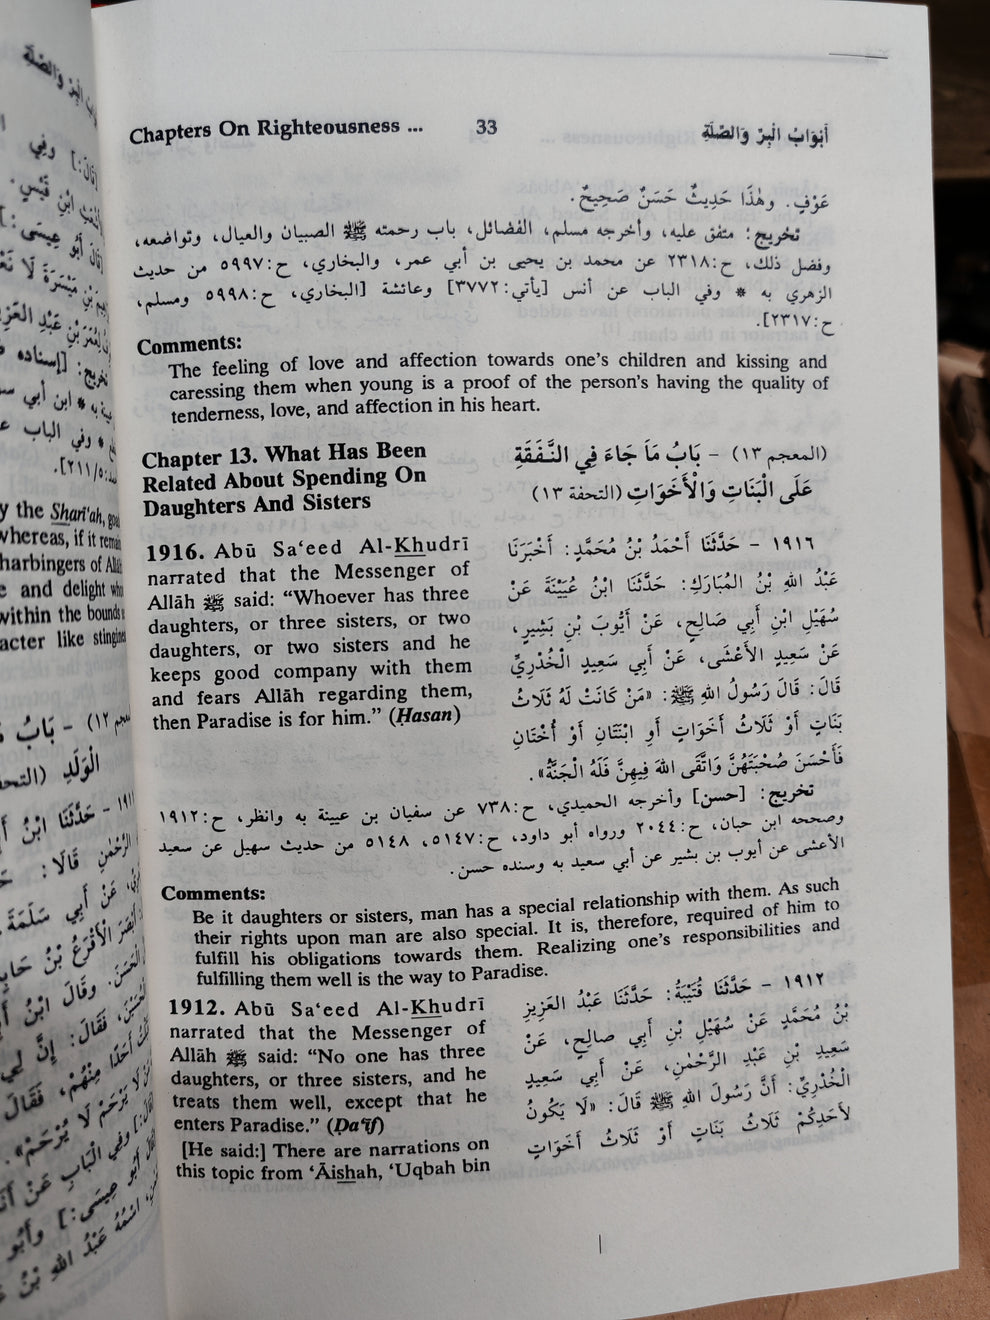 Chapters On Righteousness ... 33 أَبْوَابُ الْبِرِّ وَالصِّلَةِ
عَوْفٍ. وهٰذَا حَدِيثٌ حَسَنٌ صَحِيحٌ.
تخريج: متفق عليه، وأخرجه مسلم، الفضائل، باب رحمته ﷺ الصبيان والعيال، وتواضعه،
وفضل ذلك، ح:٢٣١٨ عن محمد بن يحيى بن أبي عمر، والبخاري، ح:٥٩٩٧ من حديث
الزهري به * وفي الباب عن أنس [يأتي:٣٧٧٢] وعائشة [البخاري، ح:٥٩٩٨ ومسلم،
ح:٢٣١٧].
Comments:
The feeling of love and affection towards one's children and kissing and
caressing them when young is a proof of the person's having the quality of
tenderness, love, and affection in his heart.
Chapter 13. What Has Been
Related About Spending On
Daughters And Sisters
(المعجم ١٣) - بَابُ مَا جَاءَ فِي النَّفَقَةِ
عَلَى الْبَنَاتِ وَالْأَخَوَاتِ (التحفة ١٣)
1916. Abū Sa‘eed Al-Khudrī
narrated that the Messenger of
Allāh ﷺ said: “Whoever has three
daughters, or three sisters, or two
daughters, or two sisters and he
keeps good company with them
and fears Allāh regarding them,
then Paradise is for him.” (Ḥasan)
١٩١٦ - حَدَّثَنَا أَحْمَدُ بْنُ مُحَمَّدٍ: أَخْبَرَنَا
عَبْدُ اللهِ بْنُ المُبَارَكِ: حَدَّثَنَا ابْنُ عُيَيْنَةَ عَنْ
سُهَيْلِ ابْنِ أَبِي صَالِحٍ، عَنْ أَيُّوبَ بْنِ بَشِيرٍ،
عَنْ سَعِيدٍ الأَعْشَى، عَنْ أَبِي سَعِيدٍ الْخُدْرِيِّ
قَالَ: قَالَ رَسُولُ اللهِ ﷺ: «مَنْ كَانَتْ لَهُ ثَلَاثُ
بَنَاتٍ أَوْ ثَلَاثُ أَخَوَاتٍ أَوِ ابْنَتَانِ أَوْ أُخْتَانِ
فَأَحْسَنَ صُحْبَتَهُنَّ وَاتَّقَى اللهَ فِيهِنَّ فَلَهُ الْجَنَّةُ».
تخريج: [حسن] وأخرجه الحميدي، ح:٧٣٨ عن سفيان بن عيينة به وانظر، ح:١٩١٢
وصححه ابن حبان، ح:٢٠٤٤ ورواه أبو داود، ح:٥١٤٧، ٥١٤٨ من حديث سهيل عن سعيد
الأعشى عن أيوب بن بشير عن أبي سعيد به وسنده حسن.
Comments:
Be it daughters or sisters, man has a special relationship with them. As such
their rights upon man are also special. It is, therefore, required of him to
fulfill his obligations towards them. Realizing one's responsibilities and
fulfilling them well is the way to Paradise.
1912. Abū Sa‘eed Al-Khudrī
narrated that the Messenger of
Allāh ﷺ said: “No one has three
daughters, or three sisters, and he
treats them well, except that he
enters Paradise.” (Ḍa‘īf)
[He said:] There are narrations on
this topic from ‘Āishah, ‘Uqbah bin
١٩١٢ - حَدَّثَنَا قُتَيْبَةُ: حَدَّثَنَا عَبْدُ العَزِيزِ
بْنُ مُحَمَّدٍ عَنْ سُهَيْلِ بْنِ أَبِي صالِحٍ، عَنْ
سَعِيدِ بْنِ عَبْدِ الرَّحْمٰنِ، عَنْ أَبِي سَعِيدٍ
الْخُدْرِيِّ: أَنَّ رَسُولَ اللهِ ﷺ قَالَ: «لَا يَكُونُ
لأَحَدِكُمْ ثَلَاثُ بَنَاتٍ أَوْ ثَلَاثُ أَخَوَاتٍ
y the Shari'ah,
whereas, if it
harbingers of
e and delight
within the bounds
acter like